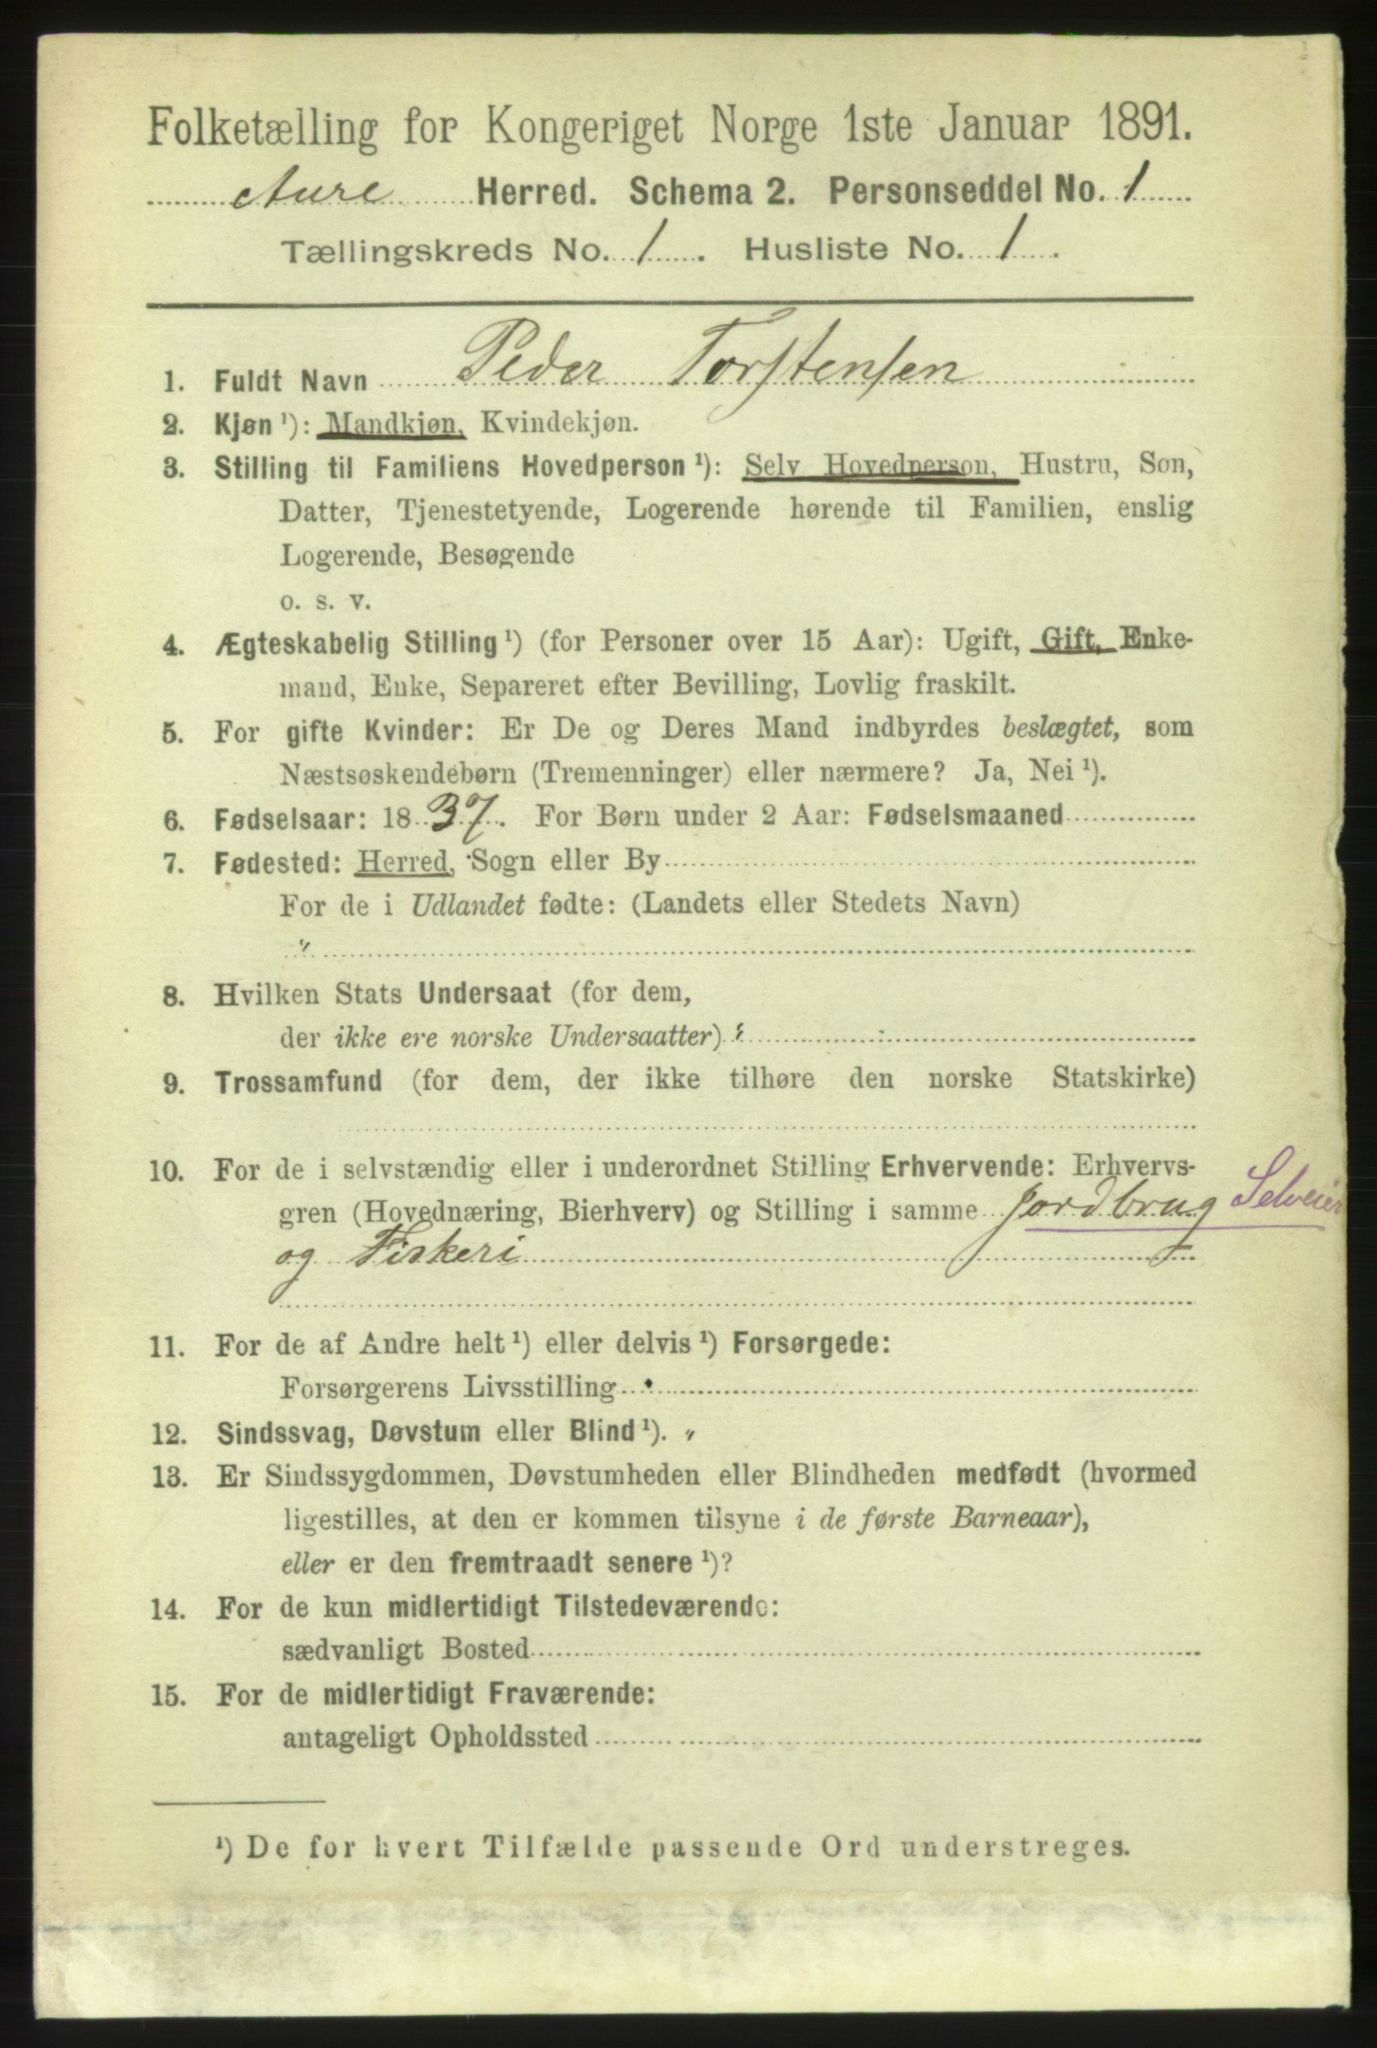 Folketælling for Kongeriget Norge 1ste Januar 1891.
Aure Herred. Schema 2. Personseddel No. 1
Tællingskreds No. 1. Husliste No. 1.
1. Fuldt Navn Peder Torstensen
2. Kjøn¹): Mandkjøn, Kvindekjøn.
3. Stilling til Familiens Hovedperson¹): Selv Hovedperson, Hustru, Søn,
Datter, Tjenestetyende, Logerende hørende til Familien, enslig
Logerende, Besøgende
o. s. v.
4. Ægteskabelig Stilling¹) (for Personer over 15 Aar): Ugift, Gift, Enke-
mand, Enke, Separeret efter Bevilling, Lovlig fraskilt.
5. For gifte Kvinder: Er De og Deres Mand indbyrdes beslægtet, som
Næstsøskendebørn (Tremenninger) eller nærmere? Ja, Nei¹).
6. Fødselsaar: 1837. For Børn under 2 Aar: Fødselsmaaned
7. Fødested: Herred, Sogn eller By
For de i Udlandet fødte: (Landets eller Stedets Navn)
"
8. Hvilken Stats Undersaat (for dem,
der ikke ere norske Undersaatter) "
9. Trossamfund (for dem, der ikke tilhøre den norske Statskirke)
10. For de i selvstændig eller i underordnet Stilling Erhvervende: Erhvervs-
gren (Hovednæring, Bierhverv) og Stilling i samme Jordbrug Selveier
og Fiskeri
11. For de af Andre helt¹) eller delvis¹) Forsørgede:
Forsørgerens Livsstilling
12. Sindssvag, Døvstum eller Blind¹). "
13. Er Sindssygdommen, Døvstumheden eller Blindheden medfødt (hvormed
ligestilles, at den er kommen tilsyne i de første Barneaar),
eller er den fremtraadt senere¹)?
14. For de kun midlertidigt Tilstedeværende:
sædvanligt Bosted
15. For de midlertidigt Fraværende:
antageligt Opholdssted
¹) De for hvert Tilfælde passende Ord understreges.